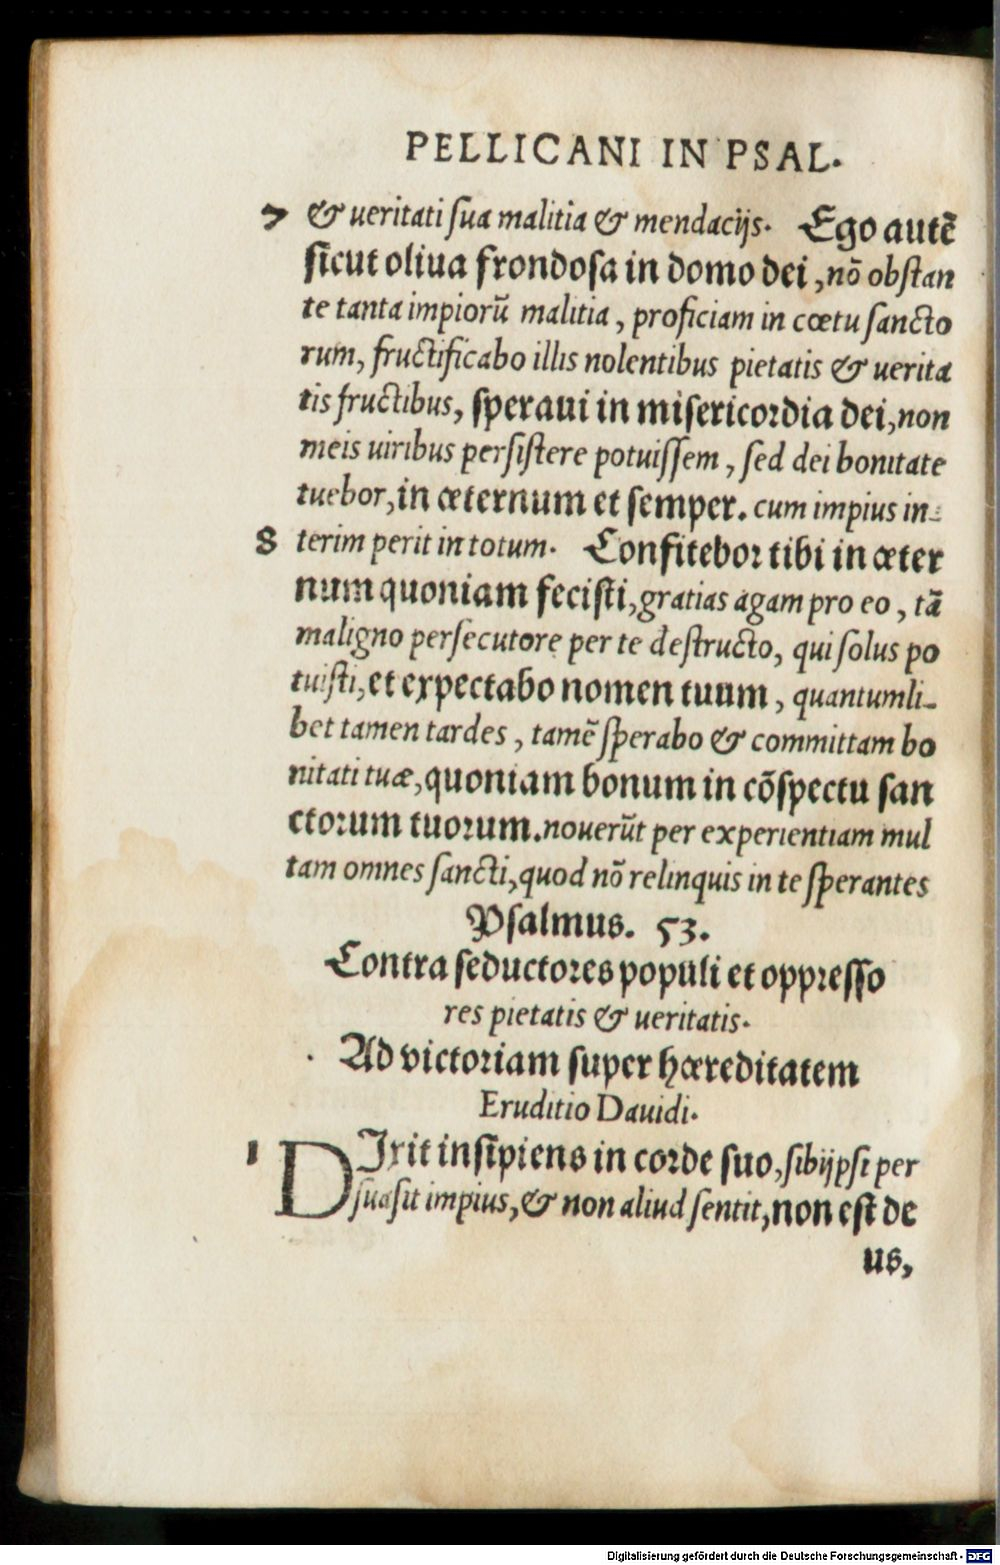 PELLICANI IN PSAL.
7 & ueritati sua malitia & mendacijs. Ego autē
sicut oliua frondosa in domo dei, nō obstan
te tanta impiorū malitia, proficiam in cœtu sancto
rum, fructificabo illis nolentibus pietatis & uerita
tis fructibus, speraui in misericordia dei, non
meis uiribus persistere potuissem, sed dei bonitate
tuebor, in æternum et semper. cum impius in-
8 terim perit in totum. Confitebor tibi in æter
num quoniam fecisti, gratias agam pro eo, tā
maligno persecutore per te destructo, qui solus po
tuisti, et expectabo nomen tuum, quantumli-
bet tamen tardes, tamē sperabo & committam bo
nitati tuæ, quoniam bonum in cōspectu san
ctorum tuorum. nouerūt per experientiam mul
tam omnes sancti, quod nō relinquis in te sperantes
Psalmus. 53.
Contra seductores populi et oppresso
res pietatis & ueritatis.
Ad victoriam super hæreditatem
Eruditio Dauidi.
1 DIxit insipiens in corde suo, sibijpsi per
suasit impius, & non aliud sentit, non est de
us,
Digitalisierung gefördert durch die Deutsche Forschungsgemeinschaft - DFG